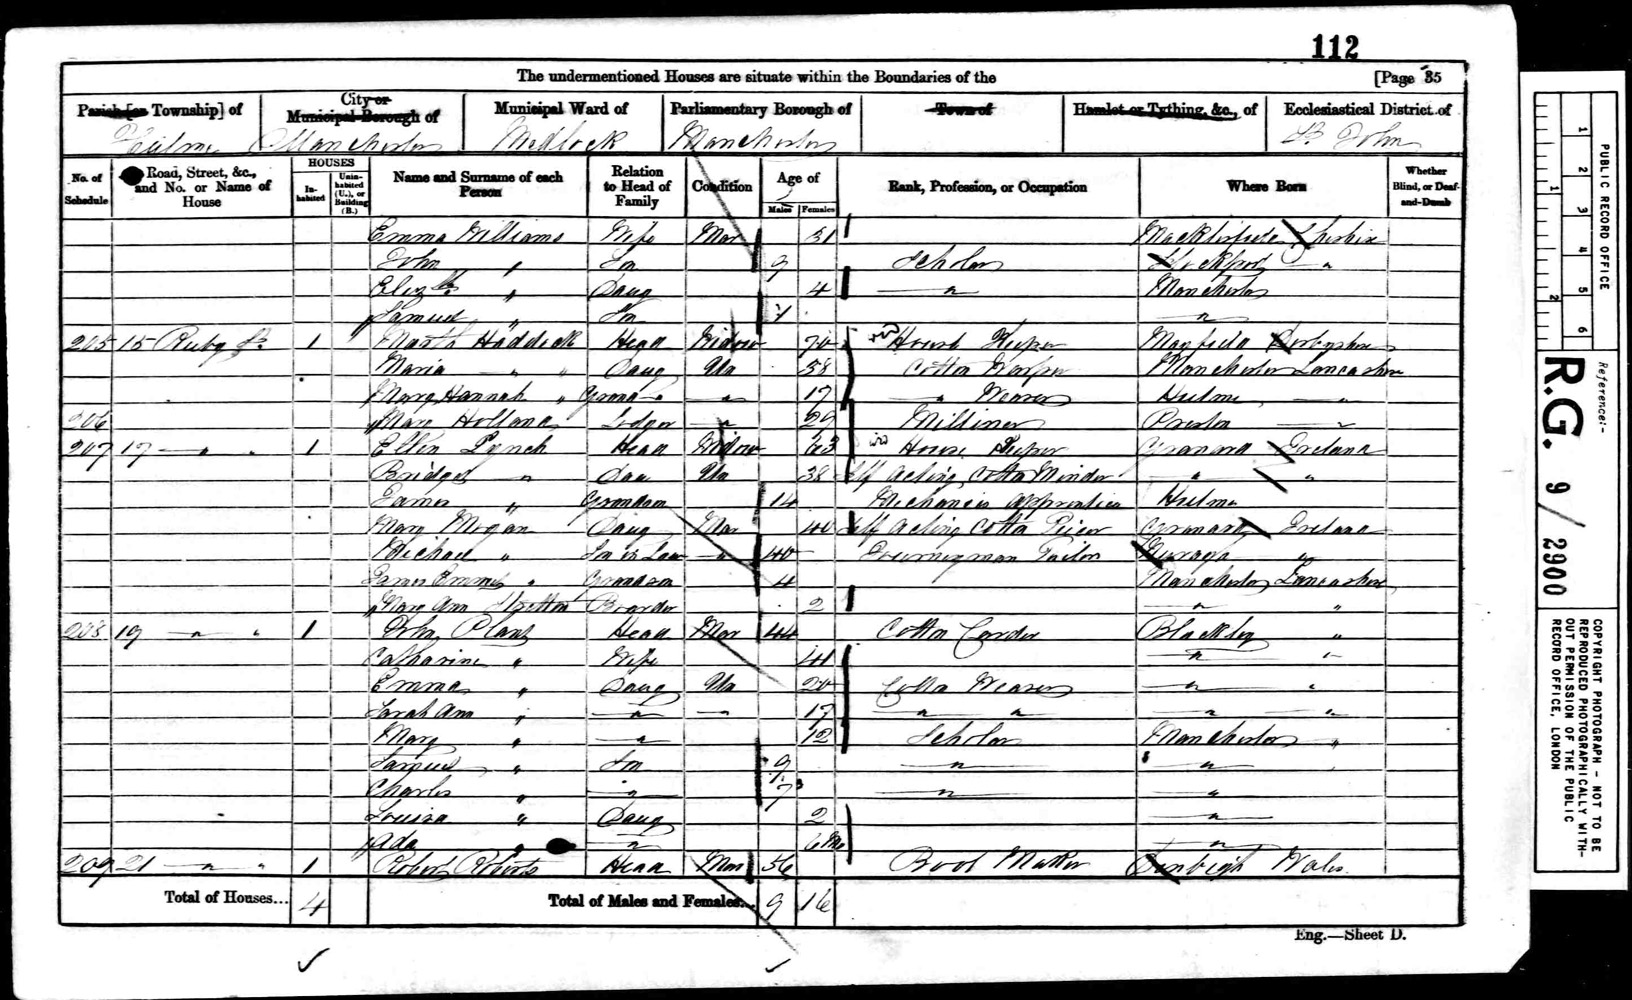 112
The undermentioned Houses are situate within the Boundaries of the [Page 35
Parish [or Township] of City or Municipal Borough of Municipal Ward of Parliamentary Borough of Town of Hamlet or Tything, &c., of Ecclesiastical District of
Hulme Manchester Medlock Manchester St John
No. of Schedule Road, Street, &c., and No. or Name of House HOUSES In-habited Unin-habited (U.), or Building (B.) Name and Surname of each Person Relation to Head of Family Condition Age of Males Females Rank, Profession, or Occupation Where Born Whether Blind, or Deaf-and-Dumb
Emma Williams Wife Mar 31 Macklesfield Cheshire
John " Son 9 Scholar Stockport "
Elizth " Daug 4 " Manchester
Samuel " Son 1 "
205 15 Ruby St. 1 Martha Haddock Head Widow 70 House Keeper Mayfield Derbyshire
Maria " " Daug Un 38 Cotton Warper Manchester Lancashire
Mary Hannah " Grand " " 17 " Weaver Hulme "
206 Mary Holland Lodger " 29 Milliner Preston "
207 17 " " 1 Ellen Lynch Head Widow 63 House Keeper Granard Ireland
Bridget " Dau Un 38 Self Acting Cotton Minder " "
James " Grandson 14 Mechanics Apprentice Hulme
Mary Mogan Daug Mar 40 Self Acting Cotton Piecer Granard Ireland
Michael " Son in Law " 40 Journeyman Tailor "
James Emmet " Grandson 4 Manchester Lancashire
Mary Ann Boarder 2 " "
208 19 " " 1 John Plant Head Mar 44 Cotton Carder Blackley "
Catharine " Wife 41 " "
Emma " Daug Un 20 Cotton Weaver " "
Sarah Ann " " " 17 " " " "
Mary " " 12 Scholar Manchester "
Samuel " Son 9 " "
Charles " " 7 " "
Louisa " Daug 2 "
Ada " " 6 Mo "
209 21 " " 1 Robert Roberts Head Mar 56 Boot Maker Denbigh Wales.
Total of Houses... 4 Total of Males and Females... 9 16
Eng.—Sheet D.
1 2 3 4 5 6
1 2
PUBLIC RECORD OFFICE
Reference:-
R.G. 9/2900
COPYRIGHT PHOTOGRAPH - NOT TO BE
REPRODUCED PHOTOGRAPHICALLY WITH-
OUT PERMISSION OF THE PUBLIC
RECORD OFFICE, LONDON